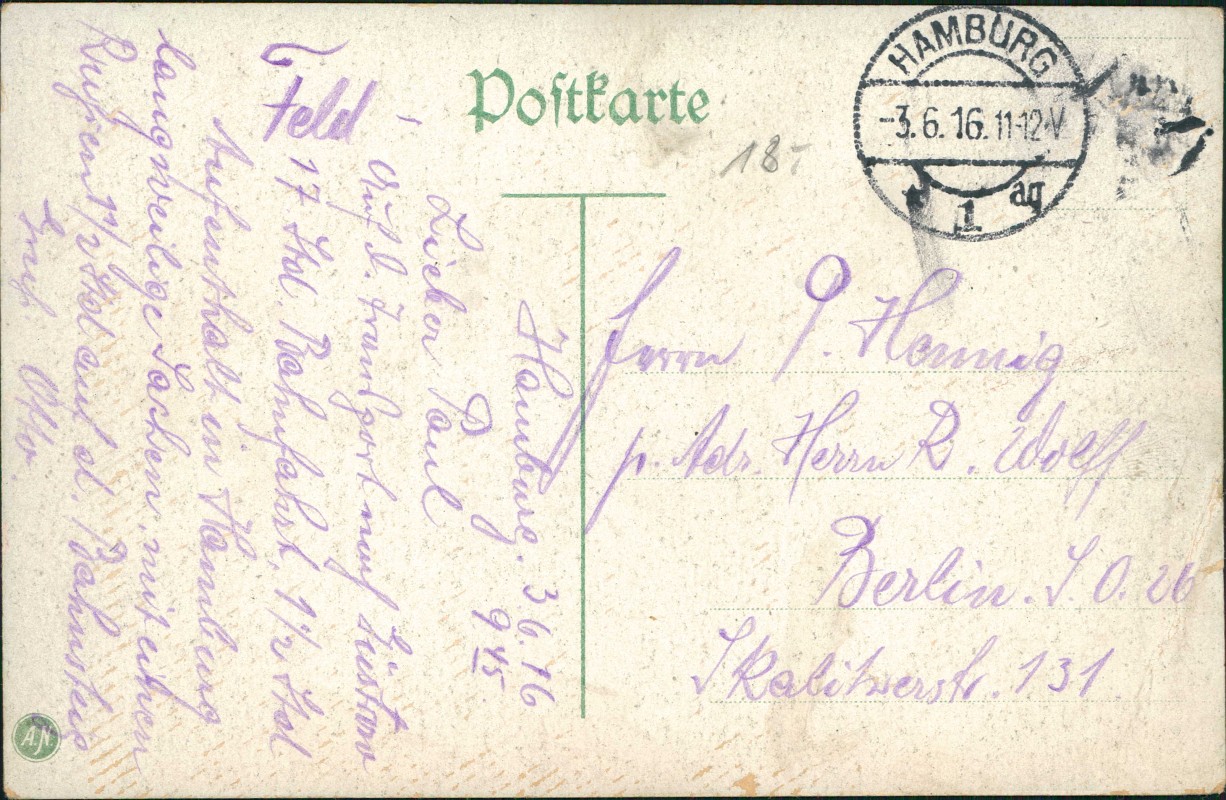 Postkarte
HAMBURG
-3.6.16.11-12V
* 1 ag
18.-
Feld
Hamburg. 3 6. 16
9 45
Lieber Paul
Auf d. Transport nach
17 Std. Bahnfahrt. 1 1/2 Std
Aufenthalt in Hamburg
langweilige Sachen, mit
1 1/2 Std auf d. Bahnsteig
Otto.
Herrn P. Hennig
p. Adr. Herrn R. Wolff
Berlin. S. O. 26
Skalitzerstr. 131.
A.N.